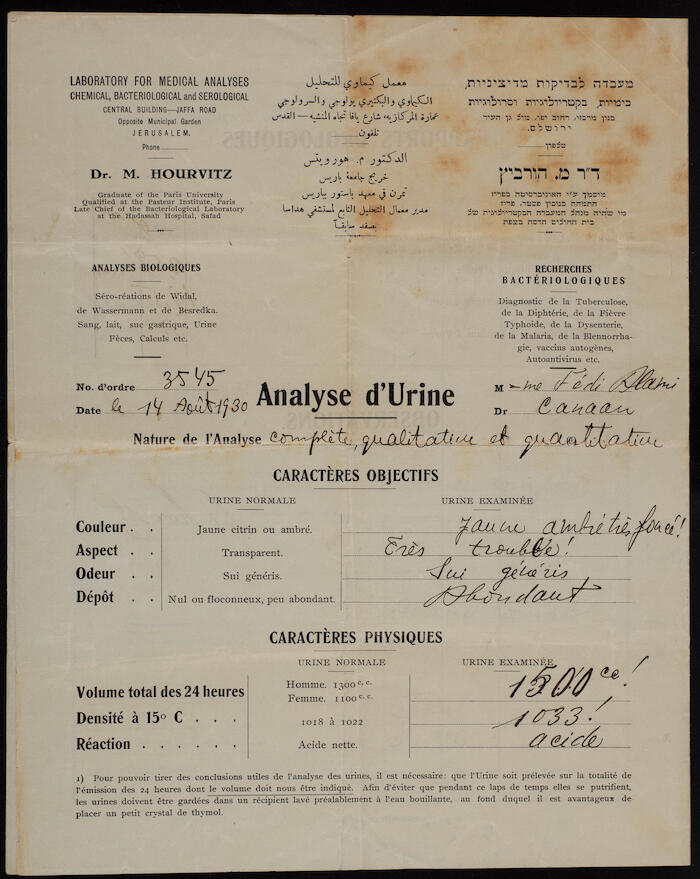 LABORATORY FOR MEDICAL ANALYSES
CHEMICAL, BACTERIOLOGICAL and SEROLOGICAL
CENTRAL BUILDING—JAFFA ROAD
Opposite Municipal Garden
JERUSALEM.
Phone
Dr. M. HOURVITZ
Graduate of the Paris University
Qualified at the Pasteur Institute, Paris
Late Chief of the Bacteriological Laboratory
at the Hadassah Hospital, Safad
معمل كيماوي للتحليل
الكيماوي والبكتيري يولوجي والسرولوجي
عمارة المركازيه شارع يافا تجاه المنشيه — القدس
تلفون
الدكتور م. هورويتس
خريج جامعة باريس
تمرن في معهد باستور بباريس
مدير معمال التحليل التابع لمستشفي هداسا
بصفد سابقاً
מעבדה לבדיקות מדיציניות,
כימיות, בקטריולוגיות וסרולוגיות
בנין מרכזי, רחוב יפו, מול גן העיר
ירושלם.
טלפון
ד״ר מ. הורביץ
מוסמך ע״י האוניברסיטה בפריז
התמחה במכון פסטר, פריז
מי שהיה מנהל המעבדה הבקטריולוגית של
בית החולים הדסה בצפת
ANALYSES BIOLOGIQUES
Séro-réations de Widal,
de Wassermann et de Besredka.
Sang, lait, suc gastrique, Urine
Fèces, Calculs etc.
RECHERCHES
BACTÉRIOLOGIQUES
Diagnostic de la Tuberculose,
de la Diphtérie, de la Fièvre
Typhoide, de la Dysenterie,
de la Malaria, de la Blennorrha-
gie, vaccins autogènes,
Autoantivirus etc.
No. d'ordre 3545
Date le 14 Août 1930
Analyse d'Urine
M-me Fédi Alami
Dr Canaan
Nature de l'Analyse complète, qualitative et quantitative
CARACTÈRES OBJECTIFS
URINE NORMALE URINE EXAMINÉE
Couleur . . Jaune citrin ou ambré. Jaune ambré très foncé!
Aspect . . Transparent. Très trouble!
Odeur . . Sui généris. Sui généris
Dépôt . . Nul ou floconneux, peu abondant. Abondant
CARACTÈRES PHYSIQUES
URINE NORMALE URINE EXAMINÉE
Volume total des 24 heures Homme. 1300 c. c. 1500 cc!
Femme. 1100 c. c.
Densité à 15° C . . . 1018 à 1022 1033!
Réaction . . . . . . Acide nette. acide
1) Pour pouvoir tirer des conclusions utiles de l'analyse des urines, il est nécessaire: que l'Urine soit prélevée sur la totalité de
l'émission des 24 heures dont le volume doit nous être indiqué. Afin d'éviter que pendant ce laps de temps elle se putrifient,
les urines doivent être gardées dans un récipient lavé préalablement à l'eau bouillante, au fond duquel il est avantageux de
placer un petit crystal de thymol.